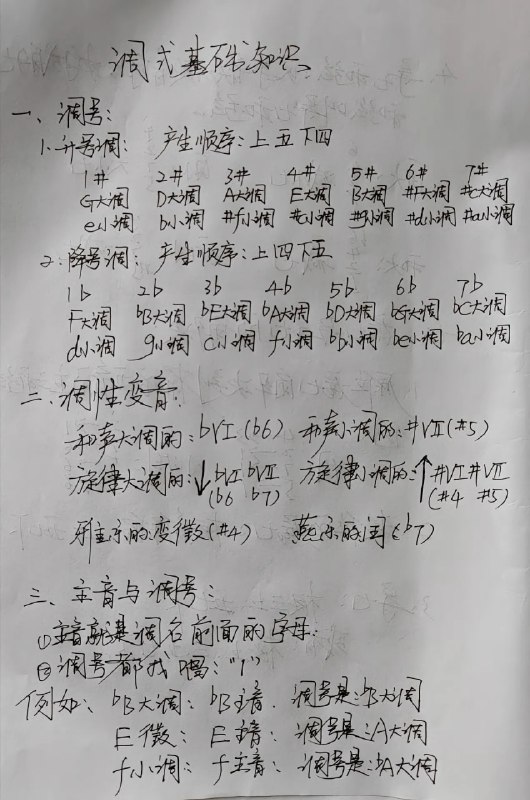 调式基础知识
一、调号:
1.升号调: 产生顺序:上五下四
1# 2# 3# 4# 5# 6# 7#
G大调 D大调 A大调 E大调 B大调 #F大调 #c大调
e小调 b小调 #f小调 #c小调 #g小调 #d小调 #a小调
2.降号调: 产生顺序:上四下五
1b 2b 3b 4b 5b 6b 7b
F大调 bB大调 bE大调 bA大调 bD大调 bG大调 bC大调
d小调 g小调 c小调 f小调 bb小调 be小调 ba小调
二、调性变音:
和声大调的:bVI(b6) 和声小调的:#VII(#5)
旋律大调的:↓bVI bVII 旋律小调的:↑#VI #VII
(b6 b7) (#4 #5)
雅乐的:变徵(#4) 燕乐的:闰(b7)
三、主音与调号:
①主音就是调名前面的字母.
②调号都找唱:"1"
例如: bB大调:bB主音. 调号是:bB大调
E徵: E主音: 调号是:A大调
f小调: f主音: 调号是:bA大调